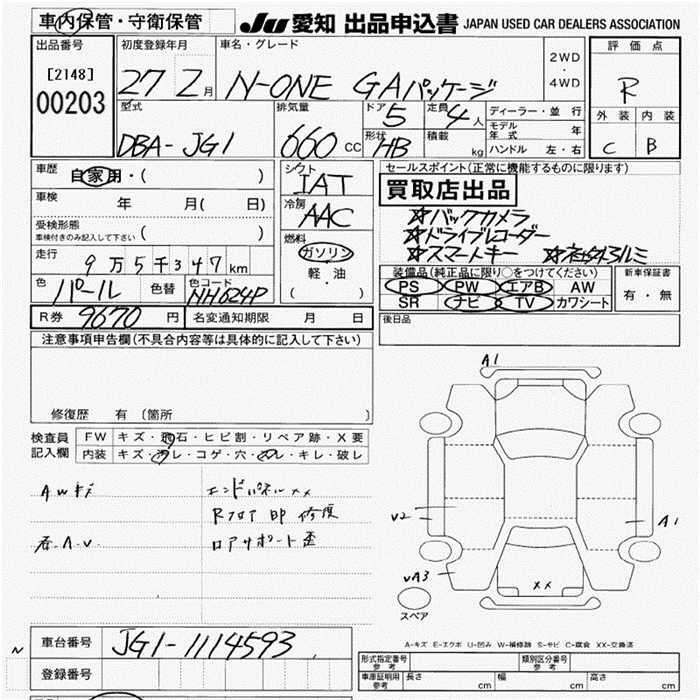 車内保管・守衛保管
JU 愛知 出品申込書 JAPAN USED CAR DEALERS ASSOCIATION
出品番号
[2148]
00203
初度登録年月
27 2月
車名・グレード
N-ONE GAパッケージ
2WD
・
4WD
評価点
R
外装 内装
C B
型式
DBA-JG1
排気量
660 CC
ドア 5
定員 4人
形状 HB
積載 kg
ディーラー・並行
モデル年式 年
ハンドル 左・右
車歴 自家用・( )
車検 年 月( 日)
受検形態
車検付きのみ記入して下さい ( )
走行 9万5千347km
色 パール
色替
色コード NH624P
シフト
IAT
冷房
AAC
燃料
ガソリン
軽・油
( )
セールスポイント(正常に機能するものに限ります)
買取店出品
☆バックカメラ
☆ドライブレコーダー
☆スマートキー ☆社外アルミ
装備品(純正品に限り○をつけてください)
PS PW エアB AW
SR ナビ TV カワシート
新車保証書
有・無
後日品
R券 9670円
名変通知期限 月 日
注意事項申告欄(不具合内容等は具体的に記入して下さい)
修復歴 有 〔箇所 〕
検査員
記入欄
FW キズ・飛石・ヒビ割・リペア跡・X要
内装 キズ・ヨゴレ・コゲ・穴・スレ・キレ・破レ
AWキズ
各A.U.
エンドパネルXX
Rフロア 凹 修復
ロアサポート歪
A1
U2
A1
UA3
XX
スペア
A-キズ E-エクボ U-凹み W-補修跡 S-サビ C-腐食 XX-交換済
車台番号 JG1-1114593
登録番号
形式指定番号
参考
類別区分番号
参考
車庫証明用
参考
長さ cm
幅 cm
高さ cm